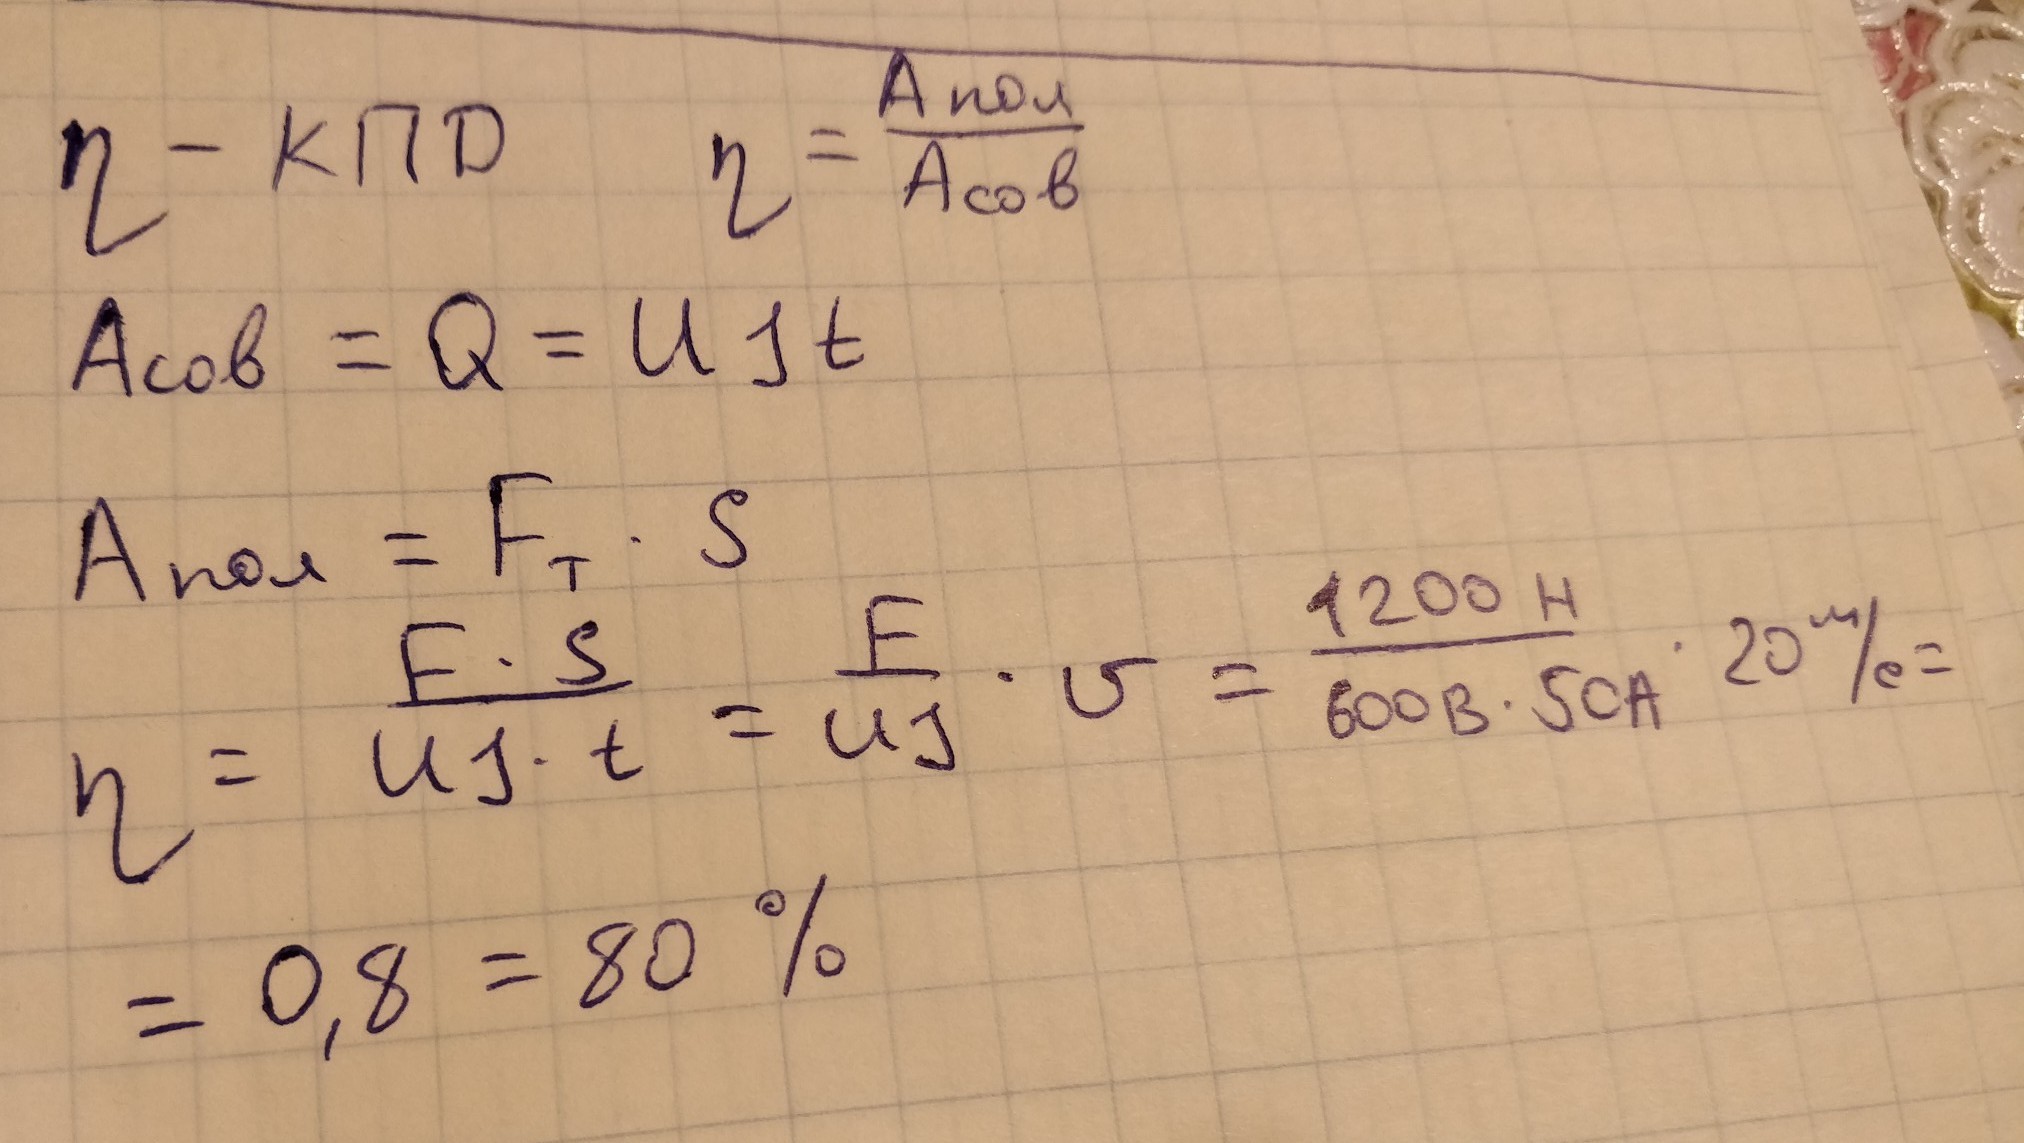 η - КПД η = Aпол / Aсов
Aсов = Q = UIt
Aпол = Fт · S
η = F · S / UI · t = F / UI · v = 1200 Н / 600В · 50А · 20 м/с =
= 0,8 = 80 %